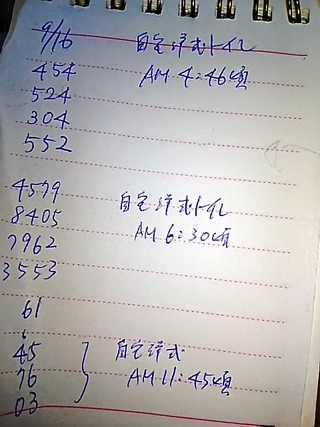 9/16 自宅洋式トイレ
454 AM 4:46頃
524
304
552
4579 自宅洋式トイレ
8405 AM 6:30頃
7962
3553
61
45 自宅洋式
76 AM 11:45頃
03